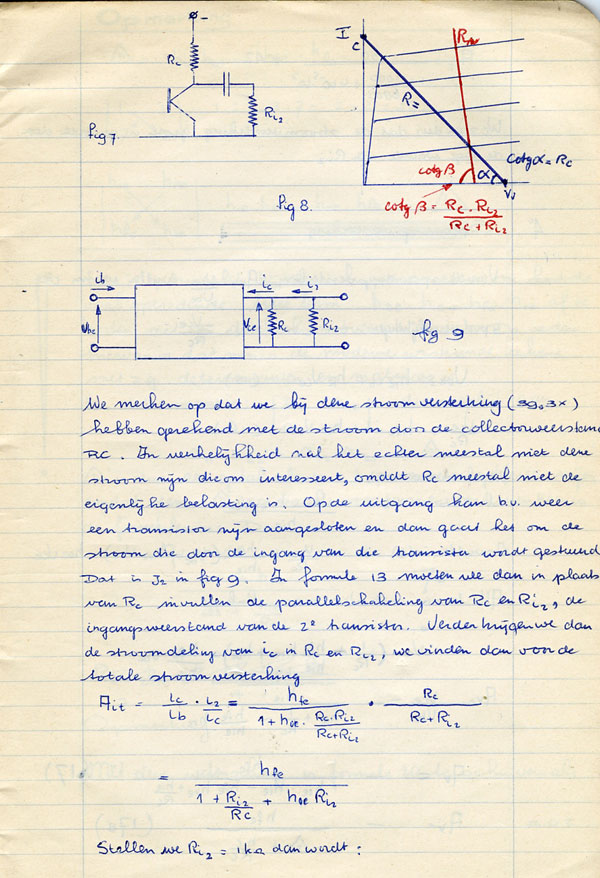 -
Rc
Ri2
fig 7
I
C
R~
R=
cotg β
α
cotg α = Rc
V
cotg β = Rc . Ri2 / Rc + Ri2
fig 8.
ib
ic
i2
Vbe
Vce
Rc
Ri2
fig 9
We merken op dat we bij deze stroomversterking (39,3x)
hebben gerekend met de stroom door de collectorweerstand
RC. In werkelijkheid zal het echter meestal niet deze
stroom zijn die ons interesseert, omdat Rc meestal niet de
eigenlijke belasting is. Op de uitgang kan b.v. weer
een transistor zijn aangesloten en dan gaat het om de
stroom die door de ingang van die transistor wordt gestuurd
Dat is J2 in fig 9. In formule 13 moeten we dan in plaats
van Rc invullen de parallelschakeling van Rc en Ri2, de
ingangsweerstand van de 2e transistor. Verder krijgen we dan
de stroomdeling van ic in Rc en Ri2, we vinden dan voor de
totale stroomversterking
Ait = ic / ib . i2 / ic = hfe / 1 + hoe . Rc.Ri2 / Rc+Ri2 . Rc / Rc+Ri2
= hfe / 1 + Ri2 / Rc + hoe Ri2
Stellen we Ri2 = 1kΩ dan wordt: